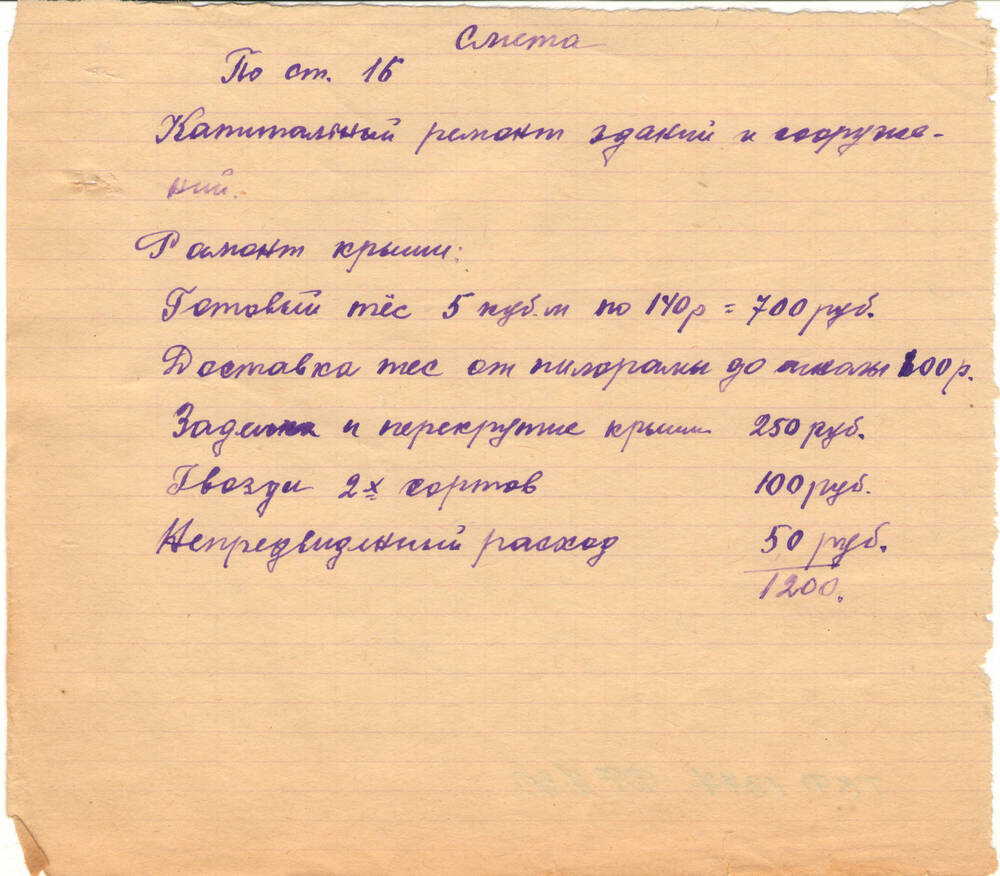 Смета
По ст. 16
Капитальный ремонт зданий и сооруже-
ний.
Ремонт крыши:
Готовый тёс 5 куб.м по 140р = 700 руб.
Доставка тес от пилорамы до школы 100 р.
Заделка и перекрутие крыши 250 руб.
Гвозди 2х сортов 100 руб.
Непредвиденный расход 50 руб.
1200.